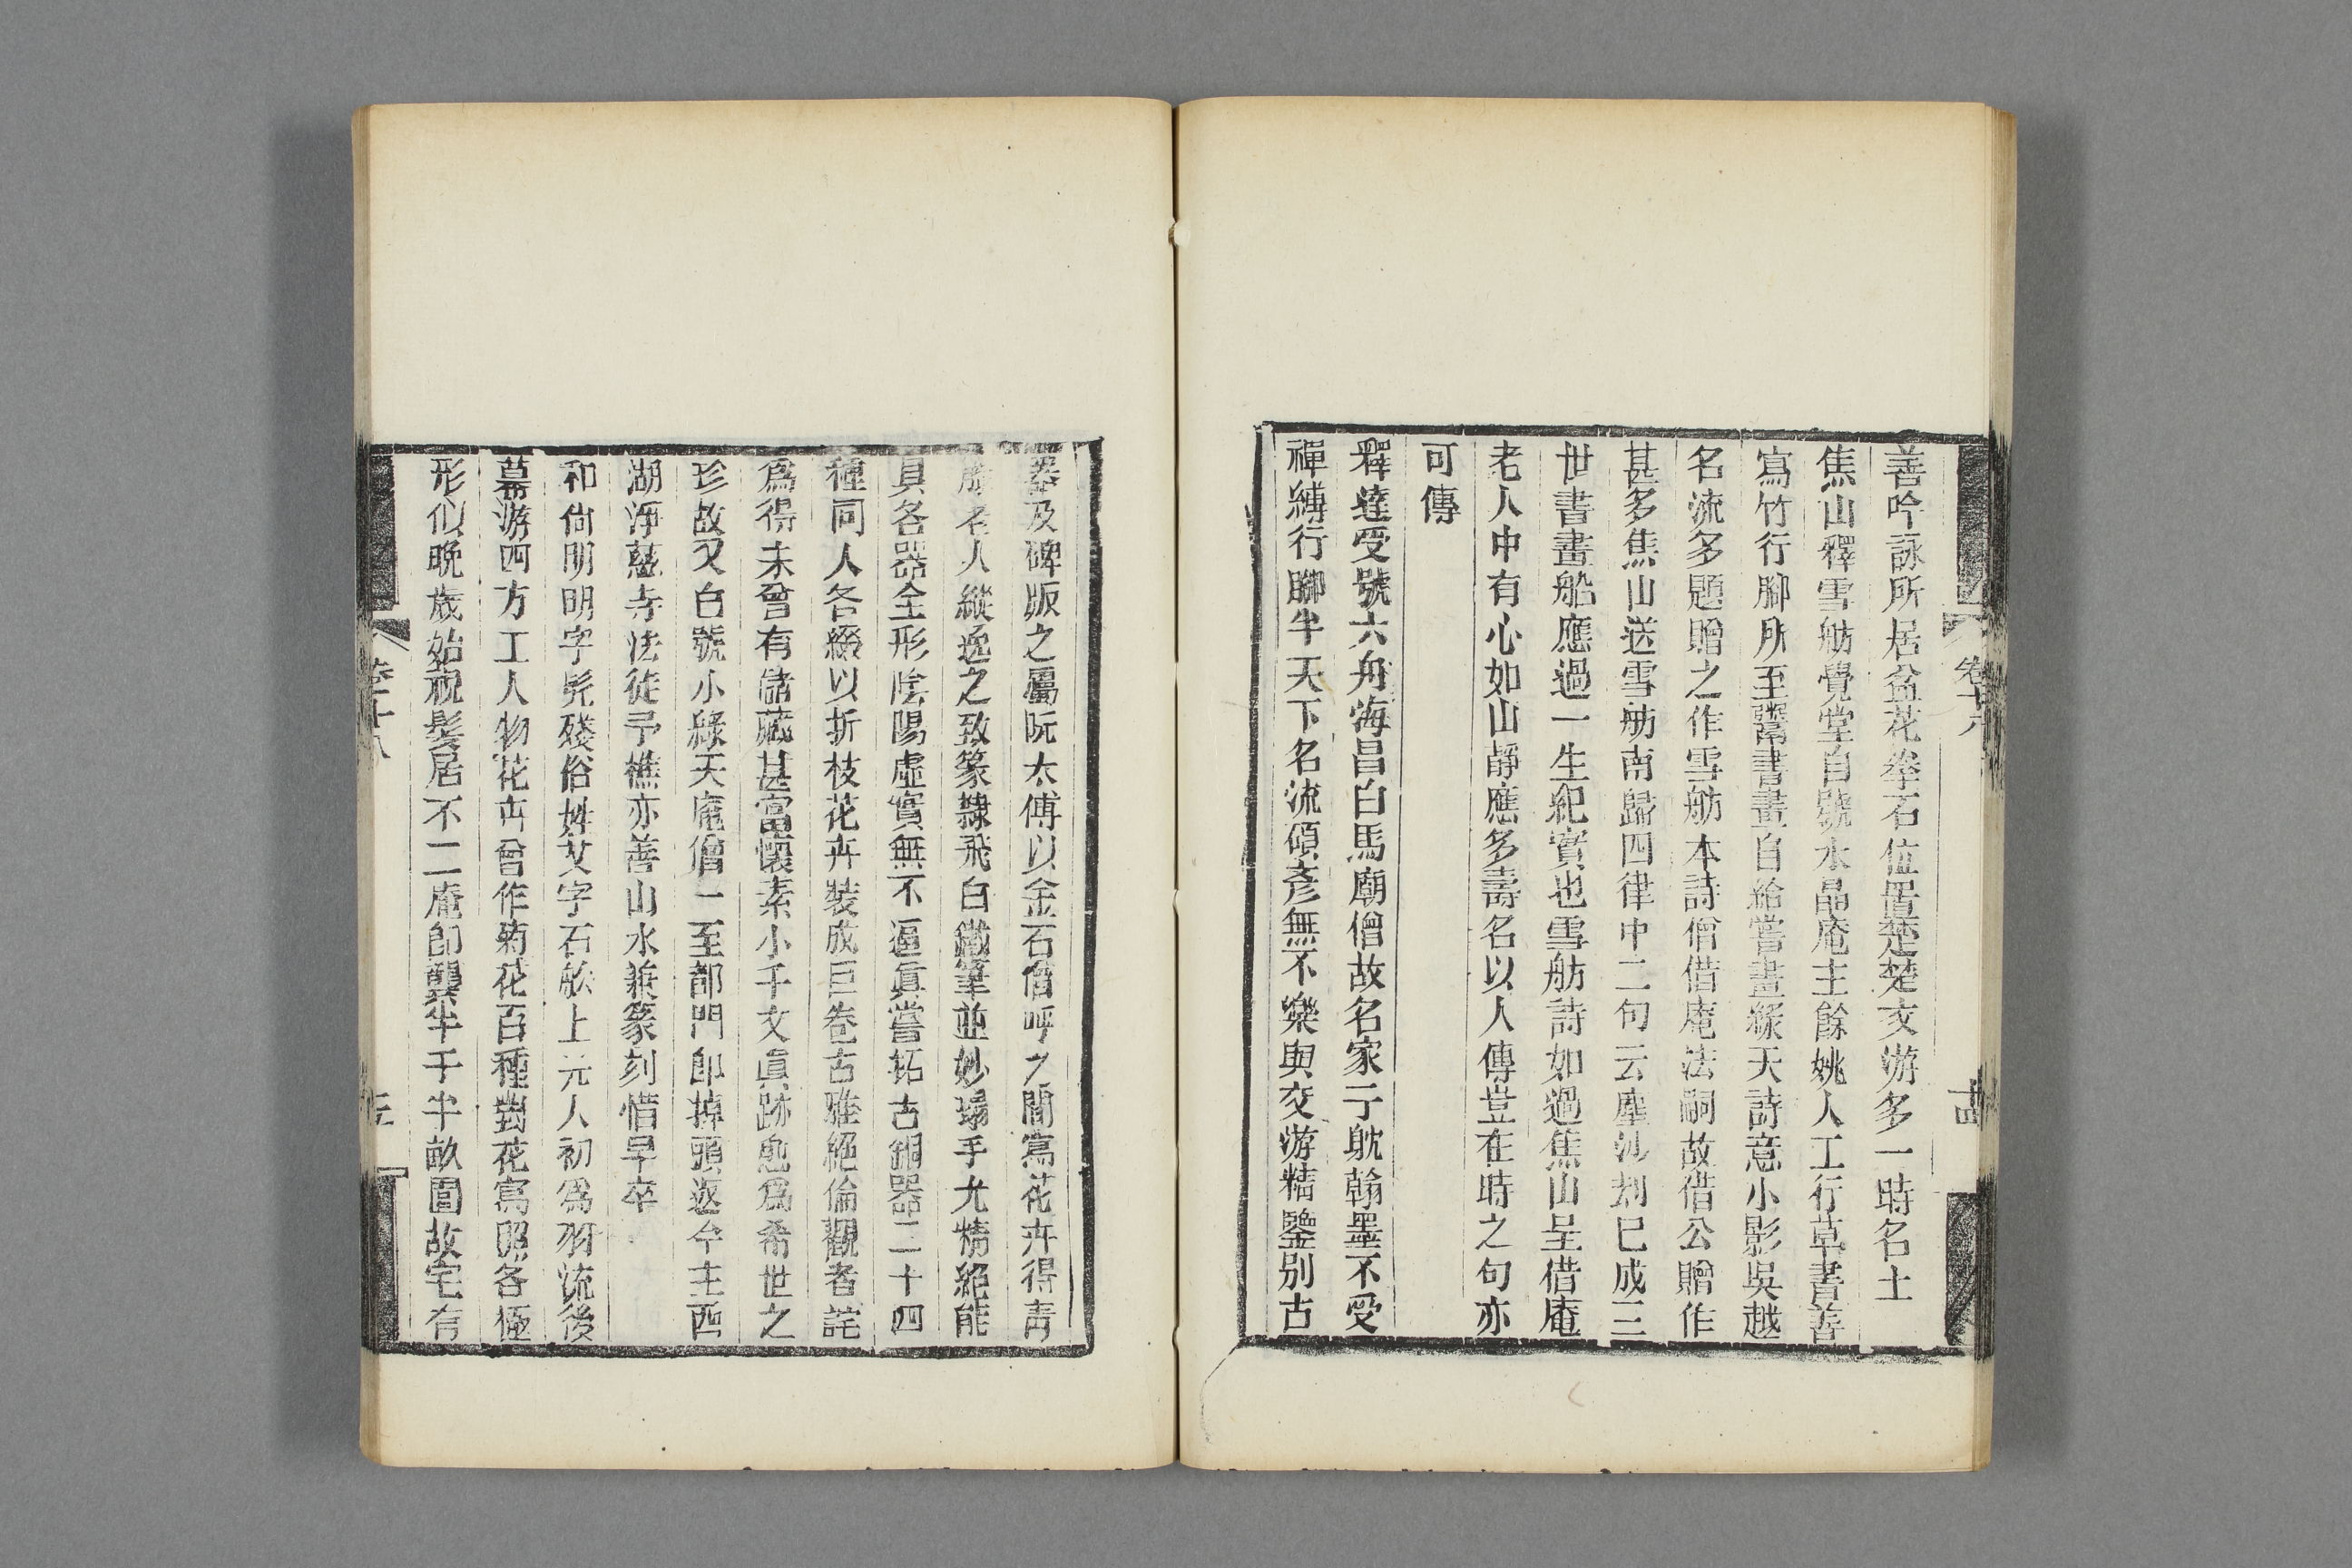 善吟詠所居盆花拳石位置楚楚交游多一時名士
焦山釋雪舫覺堂自號水晶庵主餘姚人工行草書善
寫竹行腳所至鬻書畫自給嘗畫綠天詩意小影吳越
名流多題贈之作雪舫本詩僧借庵法嗣故借公贈作
甚多焦山送雪舫南歸四律中二句云塵沙刦已成三
世書畫船應過一生紀實也雪舫詩如過焦山呈借庵
老人中有心如山靜應多壽名以人傳豈在時之句亦
可傳
釋達受號六舟海昌白馬廟僧故名家子耽翰墨不受
禪縛行腳半天下名流碩彥無不樂與交游精鑒別古
卷十八
十四
器及碑版之屬阮太傅以金石僧呼之間寫花卉得青
藤老人縱逸之致篆隸飛白鐵筆並妙搨手尤精絕能
具各器全形陰陽虛實無不逼眞嘗拓古銅器二十四
種同人各綴以折枝花卉裝成巨卷古雅絕倫觀者詫
爲得未曾有儲藏甚富懷素小千文眞跡尤爲希世之
珍故又自號小綠天庵僧一至都門即掉頭返今主西
湖淨慈寺法徒予樵亦善山水兼篆刻惜早卒
和尙明明字髠殘俗姓艾字石舩上元人初爲羽流後
幕游四方工人物花卉曾作菊花百種對花寫照各極
形似晚歲始祝髮居不二庵即龔半千半畝園故宅有
卷十八